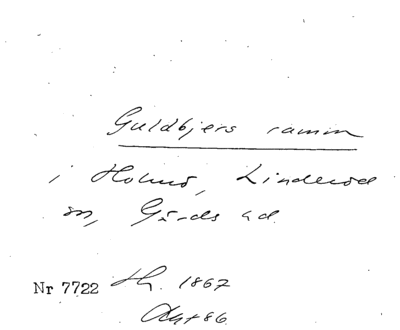 Guldbjers ramm
i Holmö, Linderöd
sn, Gärds hd.
Nr 7722 Th. 1867
Avst 86